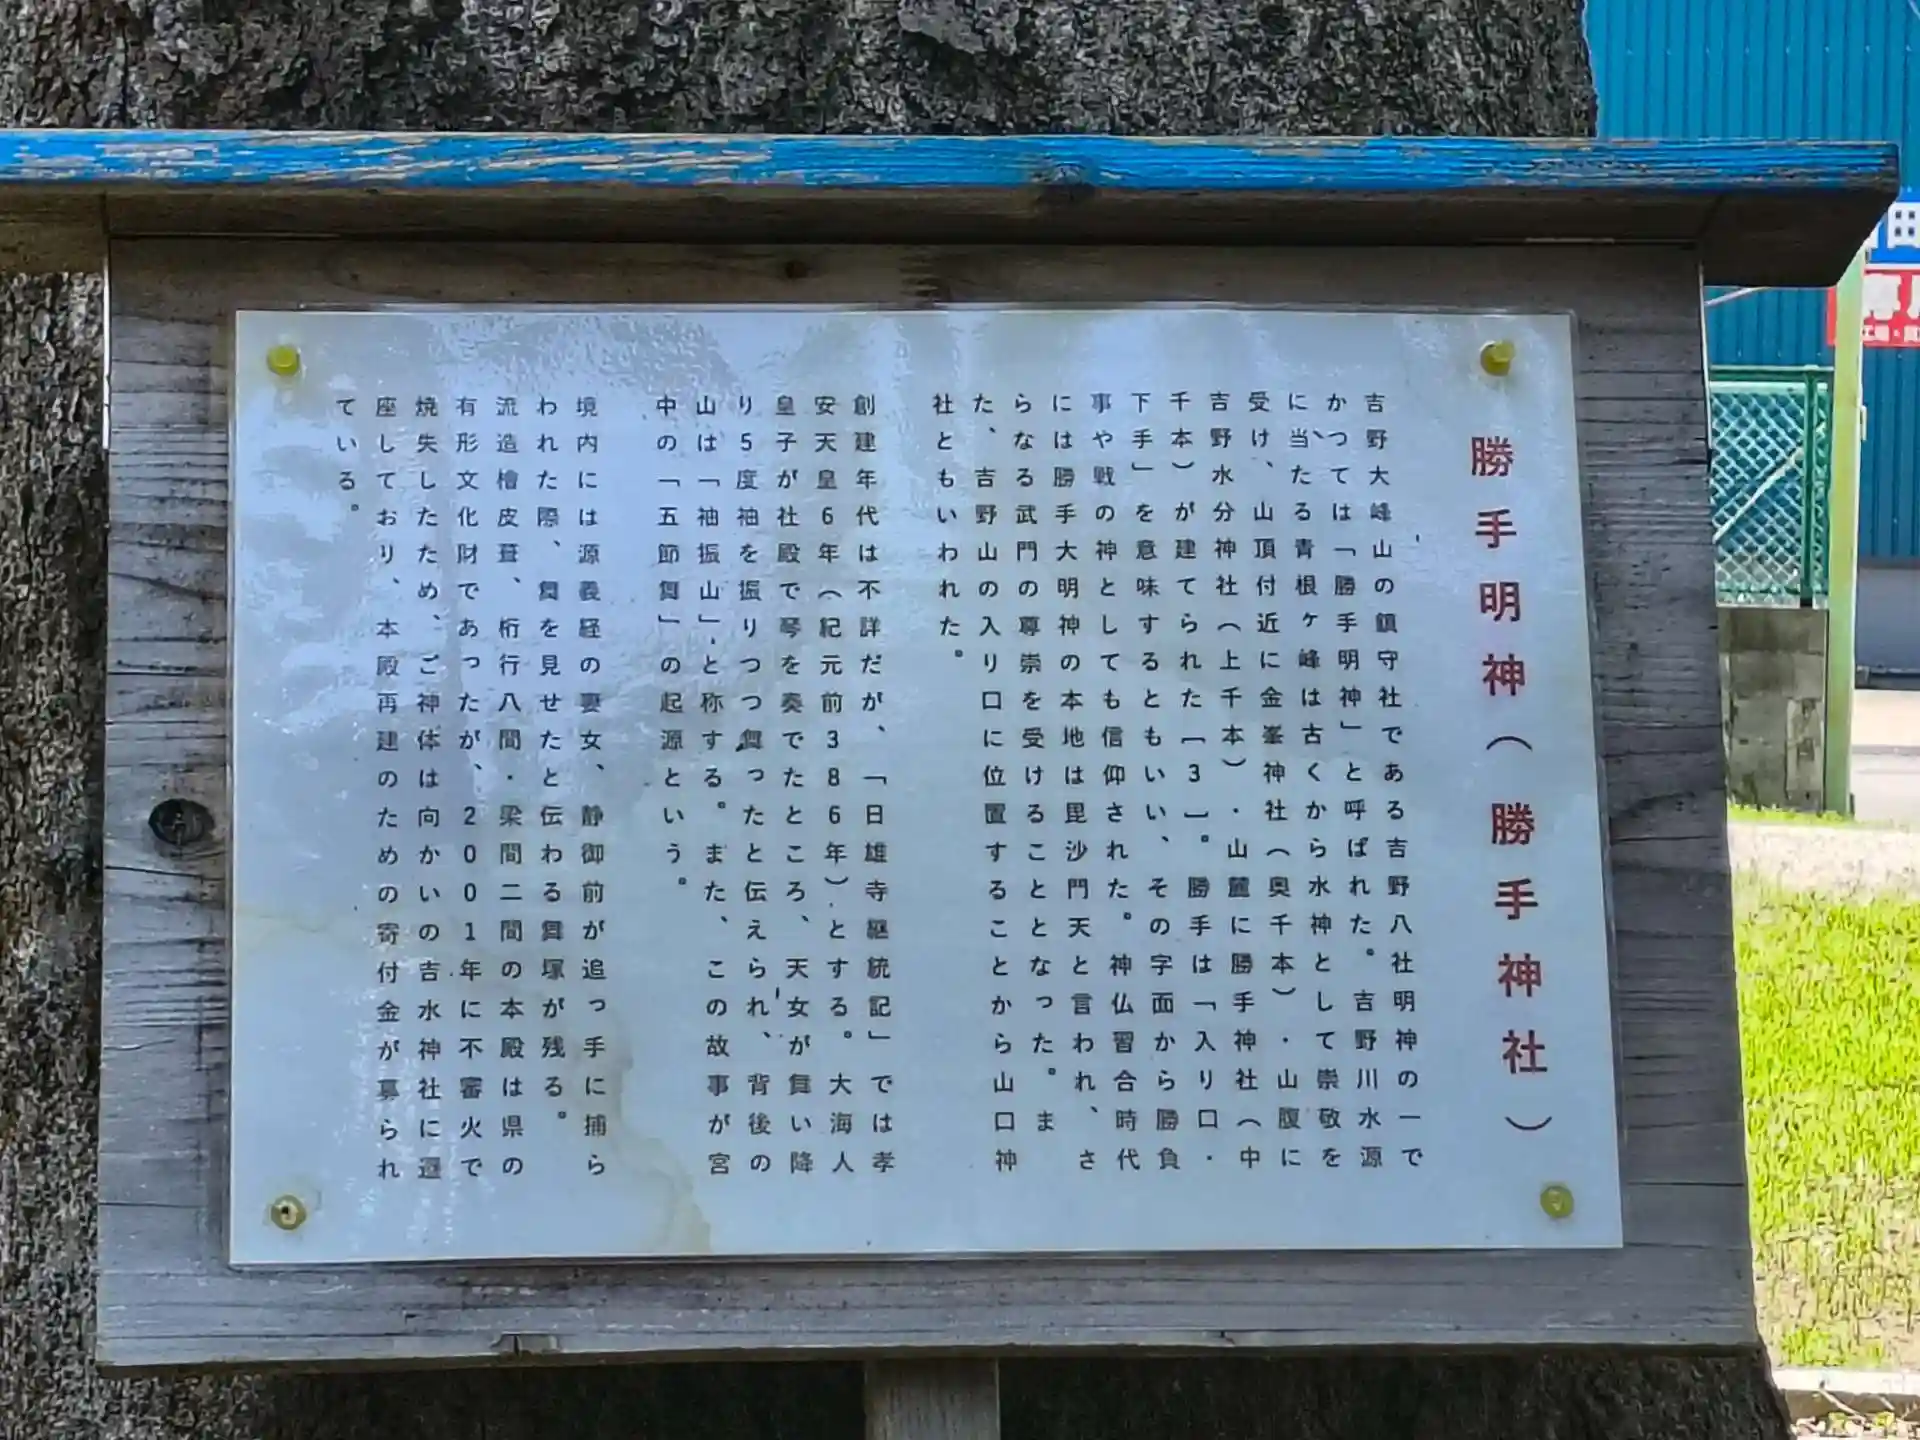 勝手明神（勝手神社）
吉野大峰山の鎮守社である吉野八社明神の一で
かつては「勝手明神」と呼ばれた。吉野川水源
に当たる青根ヶ峰は古くから水神として崇敬を
受け、山頂付近に金峯神社（奥千本）・山腹に
吉野水分神社（上千本）・山麓に勝手神社（中
千本）が建てられた［3］。勝手は「入り口・
下手」を意味するともいい、その字面から勝負
事や戦の神としても信仰された。神仏習合時代
には勝手大明神の本地は毘沙門天と言われ、さ
らなる武門の尊崇を受けることとなった。ま
た、吉野山の入り口に位置することから山口神
社ともいわれた。
創建年代は不詳だが、「日雄寺継統記」では孝
安天皇6年（紀元前386年）とする。大海人
皇子が社殿で琴を奏でたところ、天女が舞い降
り5度袖を振りつつ舞ったと伝えられ、背後の
山は「袖振山」と称する。また、この故事が宮
中の「五節舞」の起源という。
境内には源義経の妻女、静御前が追っ手に捕ら
われた際、舞を見せたと伝わる舞塚が残る。
流造檜皮葺、桁行八間・梁間二間の本殿は県の
有形文化財であったが、2001年に不審火で
焼失したため、ご神体は向かいの吉水神社に遷
座しており、本殿再建のための寄付金が募られ
ている。